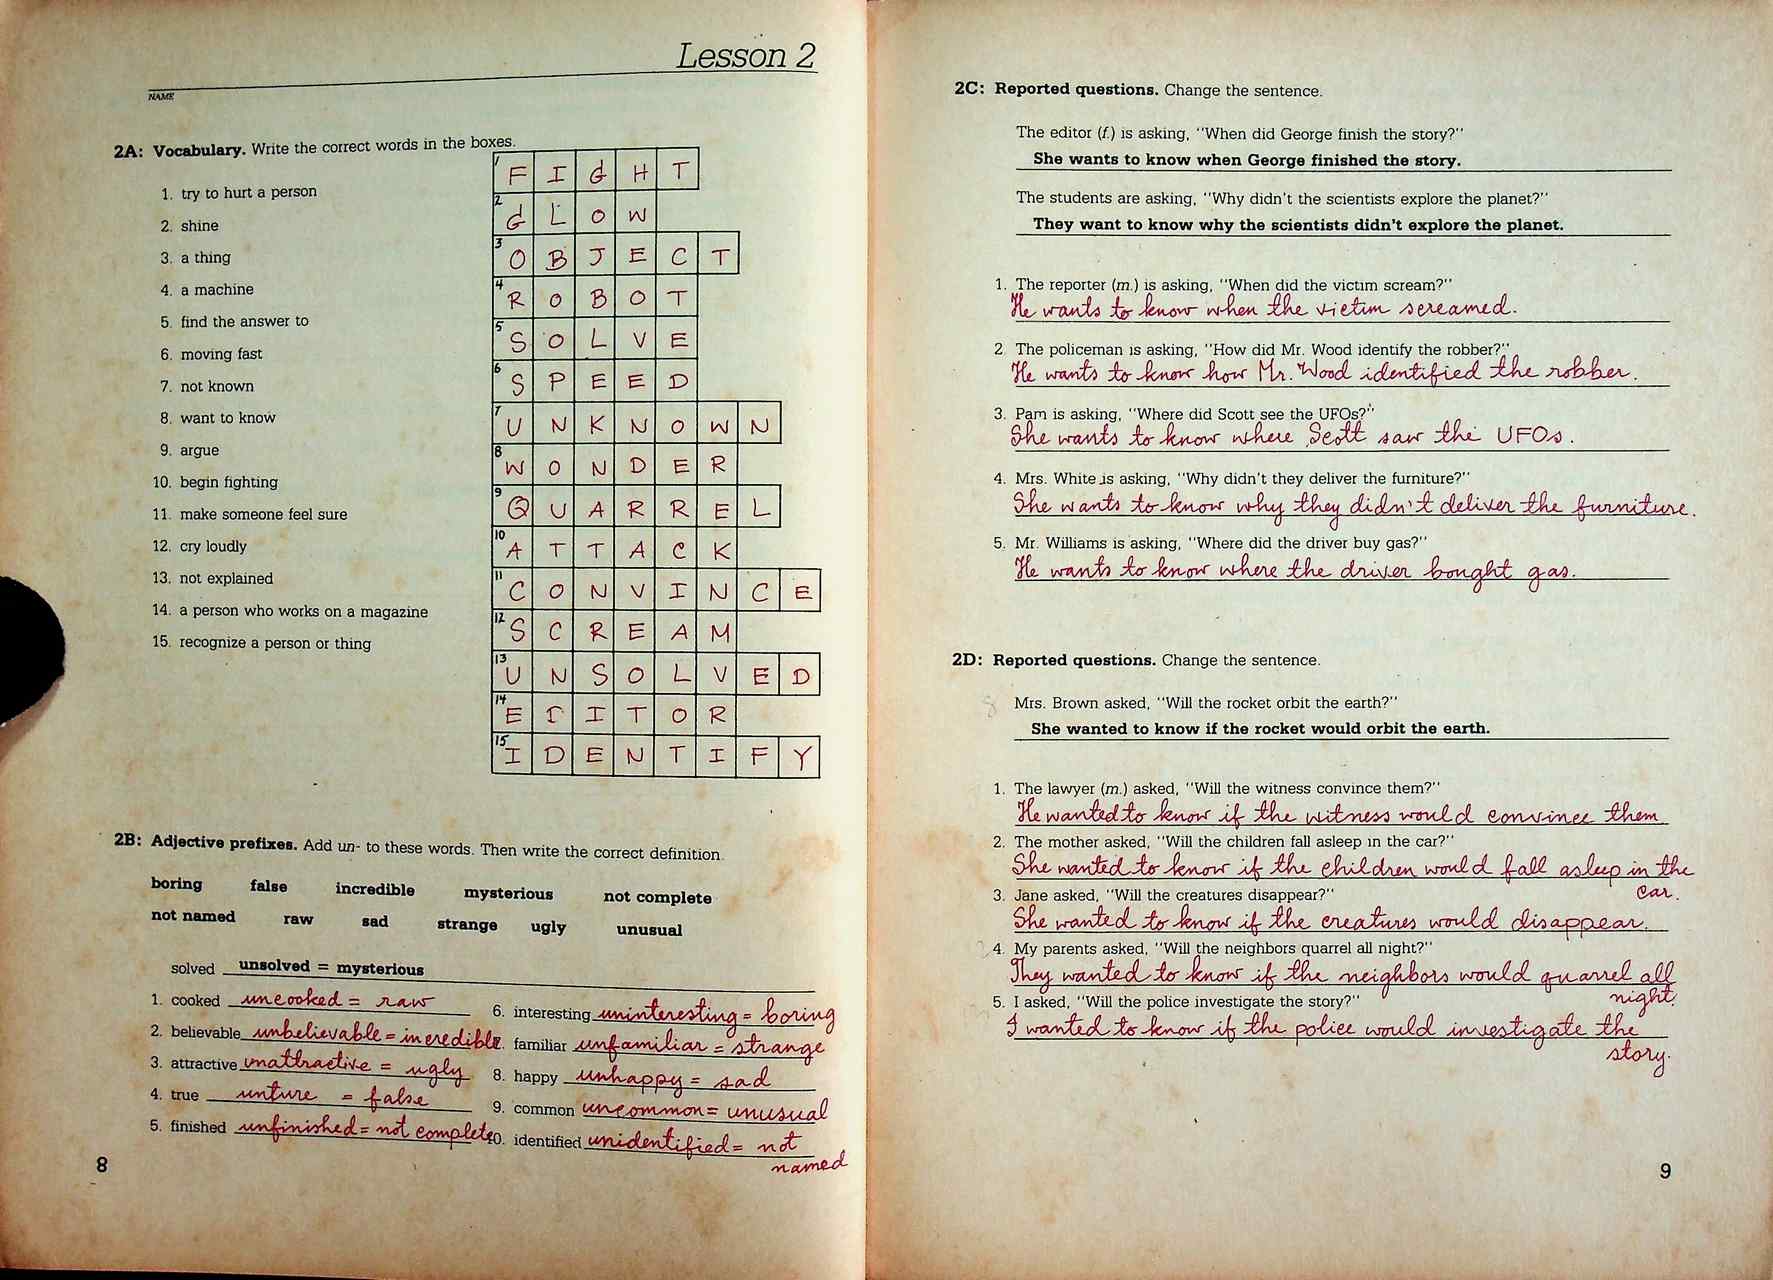 Lesson 2
NAME
2A: Vocabulary. Write the correct words in the boxes.
1. try to hurt a person
2. shine
3. a thing
4. a machine
5. find the answer to
6. moving fast
7. not known
8. want to know
9. argue
10. begin fighting
11. make someone feel sure
12. cry loudly
13. not explained
14. a person who works on a magazine
15. recognize a person or thing
1 FIGHT
2 GLOW
3 OBJECT
4 ROBOT
5 SOLVE
6 SPEED
7 UNKNOWN
8 WONDER
9 QUARREL
10 ATTACK
11 CONVINCE
12 SCREAM
13 UNSOLVED
14 EDITOR
15 IDENTIFY
2B: Adjective prefixes. Add un- to these words. Then write the correct definition.
boring false incredible mysterious not complete
not named raw sad strange ugly unusual
solved unsolved = mysterious
1. cooked uncooked = raw
2. believable unbelievable = incredible
3. attractive unattractive = ugly
4. true unture = false
5. finished unfinished = not complete
6. interesting uninteresting = boring
7. familiar unfamiliar = strange
8. happy unhappy = sad
9. common uncommon = unusual
10. identified unidentified = not
named
8
2C: Reported questions. Change the sentence.
The editor (f.) is asking, "When did George finish the story?"
She wants to know when George finished the story.
The students are asking, "Why didn't the scientists explore the planet?"
They want to know why the scientists didn't explore the planet.
1. The reporter (m.) is asking, "When did the victim scream?"
He wants to know when the victim screamed.
2. The policeman is asking, "How did Mr. Wood identify the robber?"
He wants to know how Mr. Wood identified the robber.
3. Pam is asking, "Where did Scott see the UFOs?"
She wants to know where Scott saw the UFOs.
4. Mrs. White is asking, "Why didn't they deliver the furniture?"
She wants to know why they didn't deliver the furniture.
5. Mr. Williams is asking, "Where did the driver buy gas?"
He wants to know where the driver bought gas.
2D: Reported questions. Change the sentence.
Mrs. Brown asked, "Will the rocket orbit the earth?"
She wanted to know if the rocket would orbit the earth.
1. The lawyer (m.) asked, "Will the witness convince them?"
He wanted to know if the witness would convince them
2. The mother asked, "Will the children fall asleep in the car?"
She wanted to know if the children would fall asleep in the
car.
3. Jane asked, "Will the creatures disappear?"
She wanted to know if the creatures would disappear.
4. My parents asked, "Will the neighbors quarrel all night?"
They wanted to know if the neighbors would quarrel all
night.
5. I asked, "Will the police investigate the story?"
I wanted to know if the police would investigate the
story.
9